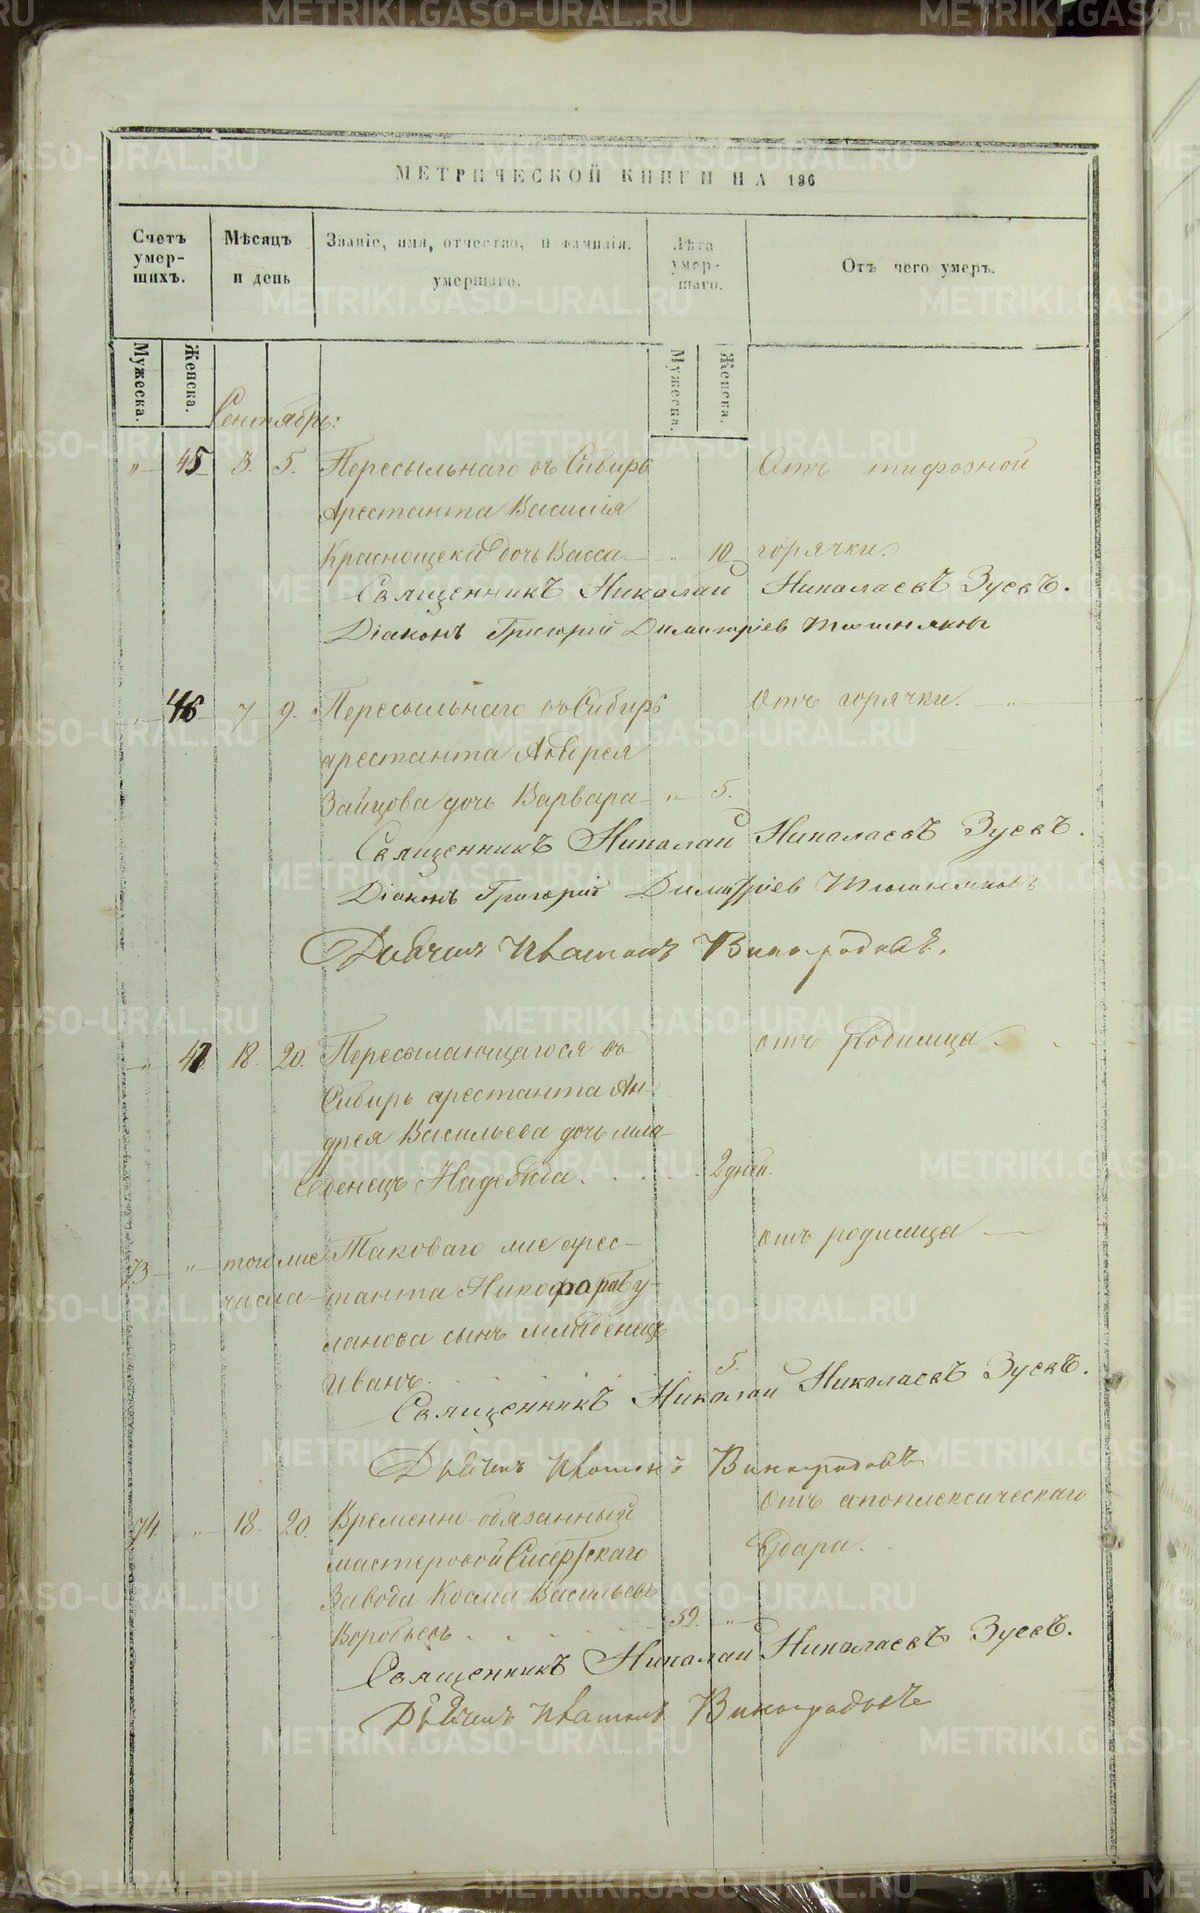 МЕТРИЧЕСКОЙ КНИГИ НА 186
Счетъ умерших.
Мѣсяцъ и день
Званіе, имя, отчество, и фамилія.
умершаго.
Лѣта умершаго.
Отъ чего умеръ.
Мужеска. Женска. Мужеска. Женска.
Сентябрь:
" 45 3. 5. Пересыльнаго въ Сибирь Отъ тифозной
Арестанта Василія
дочь Васса " 10 горячки.
Священникъ Николай Николаевъ Зуевъ.
Діаконъ Григорій Димитріев
" 46 7 9. Пересыльнаго въ Сибирь Отъ горячки. "
арестанта
Зайцова дочь Варвара " 5.
Священникъ Николай Николаевъ Зуевъ.
Діаконъ Григорій Димитріев
Виноградовъ.
" 47 18. 20. Пересылающагося въ отъ родимца
Сибирь арестанта Ан-
дрея Васильева дочь мла-
денецъ Надежда 2 дней.
73 " тогоже Таковаго же арес- отъ родимца
числа танта
ланова сынъ младенецъ
Иванъ. 5.
Священникъ Николай Николаевъ Зуевъ.
Виноградовъ
74. " 18. 20. Временно-обязанный Отъ апоплексическаго
мастеровой Сысертскаго Удара.
Завода Косма Васильевъ
Воробьевъ 52. "
Священникъ Николай Николаевъ Зуевъ.
Виноградовъ
METRIKI.GASO-URAL.RU